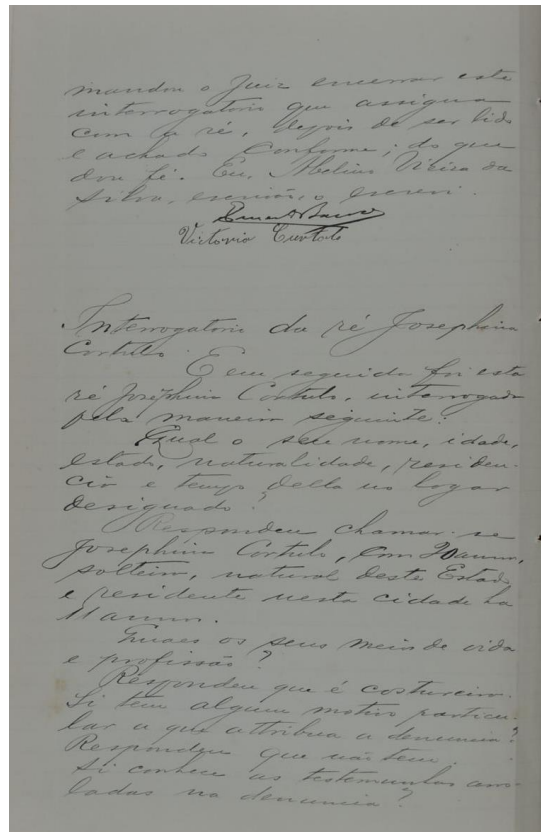 mandou o Juiz encerrar este
interrogatorio que assigna
com a ré, depois de ser lido
e achado conforme; do que
dou fé. Eu, Abelino Vieira da
Silva, escrivão, o escrevi.
Victoria Curtolo
Interrogatorio da ré Josephina
Cortulo
E em seguida foi esta
ré Josephina Cortulo, interrogada
pela maneira seguinte:
Qual o seu nome, idade,
estado, naturalidade, residen-
cia e tempo della no logar
designado?
Respondeu chamar-se
Josephina Cortulo, com 20 annos,
solteira, natural deste Estado
e residente nesta cidade ha
11 annos.
Quaes os seus meios de vida
e profissão?
Respondeu que é costureira.
Si tem algum motivo particu-
lar a que attribua a denuncia?
Respondeu que não tem.
Si conhece as testemunhas arro-
ladas na denuncia?